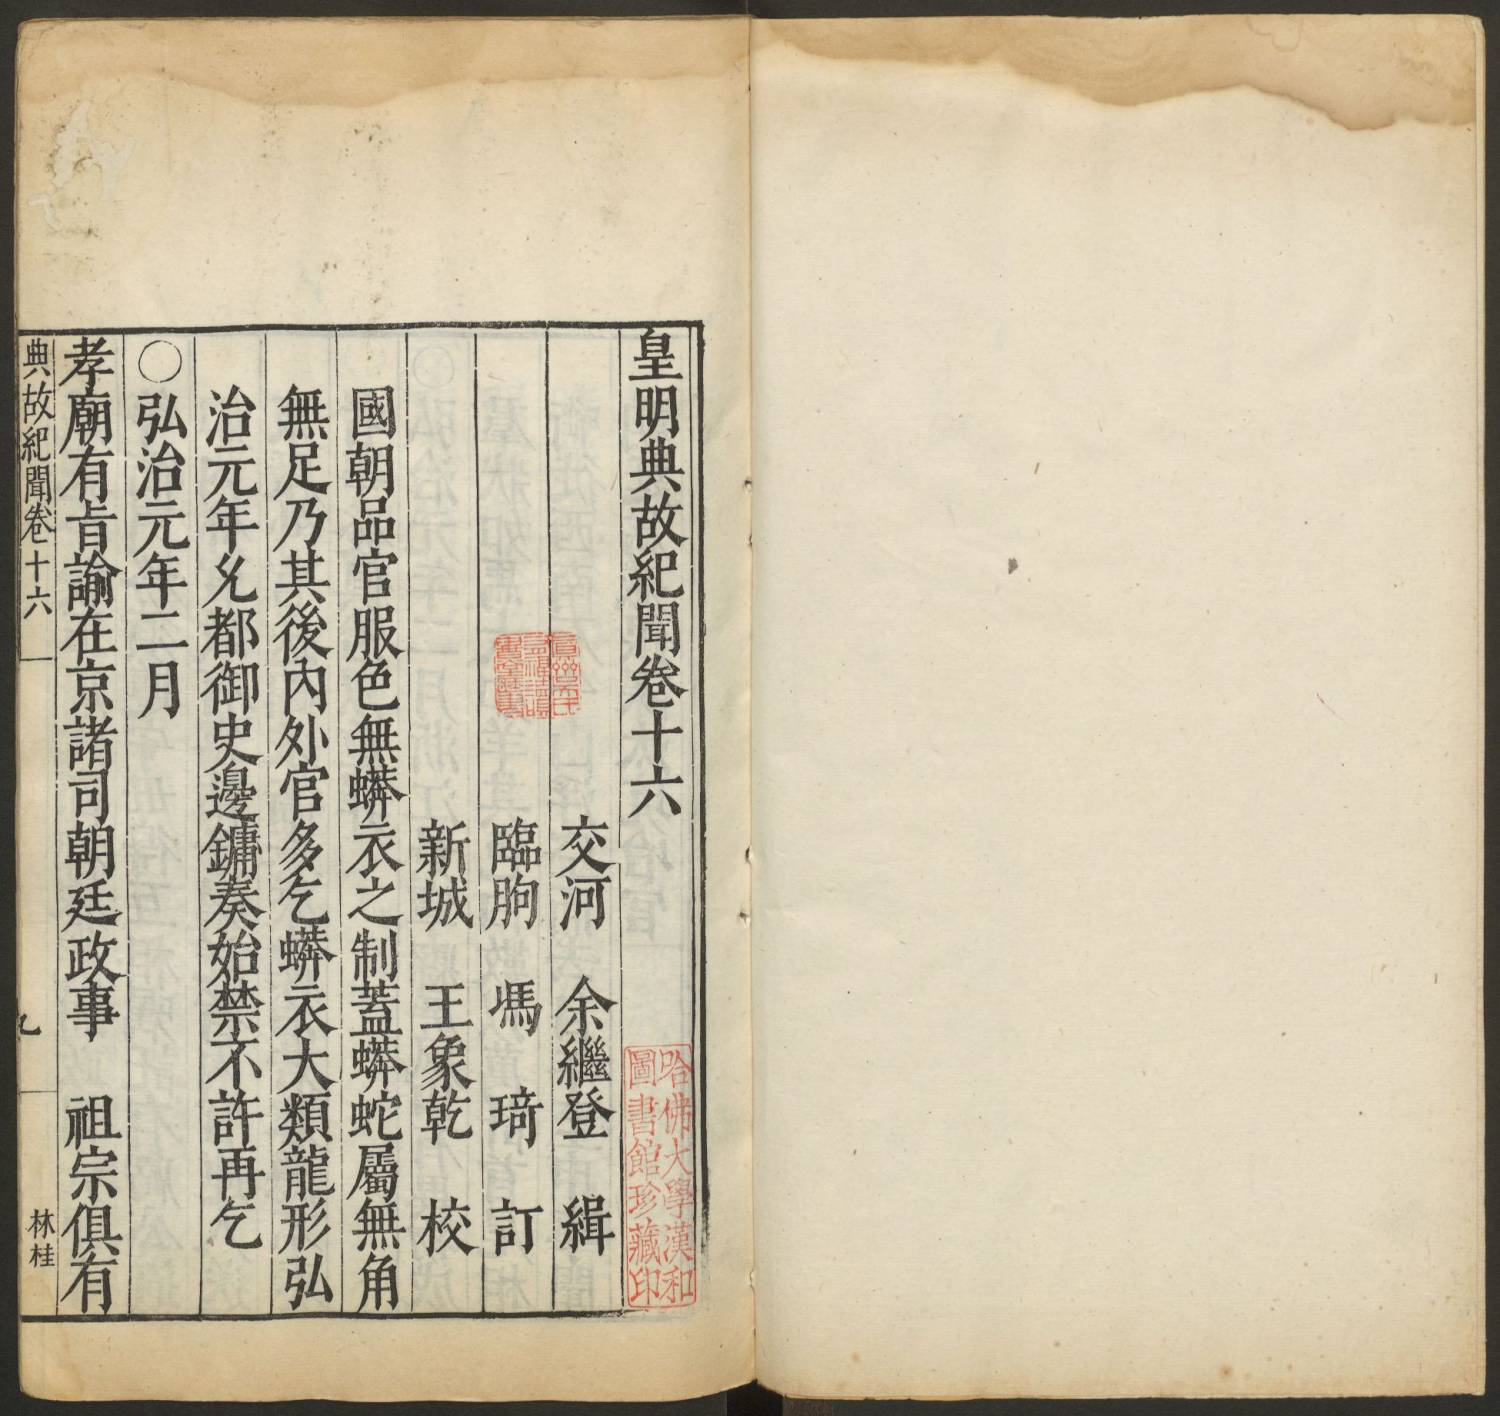 皇明典故紀聞卷十六
交河 余繼登 緝
臨朐 馮 琦 訂
新城 王象乾 校
國朝品官服色無蟒衣之制蓋蟒蛇屬無角
無足乃其後內外官多乞蟒衣大類龍形弘
治元年允都御史邊鏞奏始禁不許再乞
○弘治元年二月
孝廟有旨諭在京諸司朝廷政事 祖宗俱有
典故紀聞卷十六
林桂
哈佛大學漢和
圖書館珍藏印